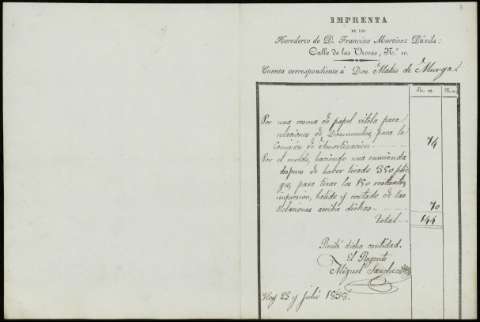 IMPRENTA
DE LOS
Herederos de D. Francisco Martinez Dávila:
Calle de las Urosas, N.º 10.
Cuenta correspondiente á Don Mateo de Murga
Rs. vn.
Mrs.
Por una resma de papel vitela para
relaciones de Documentos, para la
Comisión de Amortización 74
Por el molde, haciendo una enmienda
después de haber tirado 350
que para tirar los 150 restantes,
impresión, batido y cortado de las
Relaciones arriba dichas 70
Total 144
Recibí dicha cantidad.
El Regente
Miguel
Hoy 23 y Julio